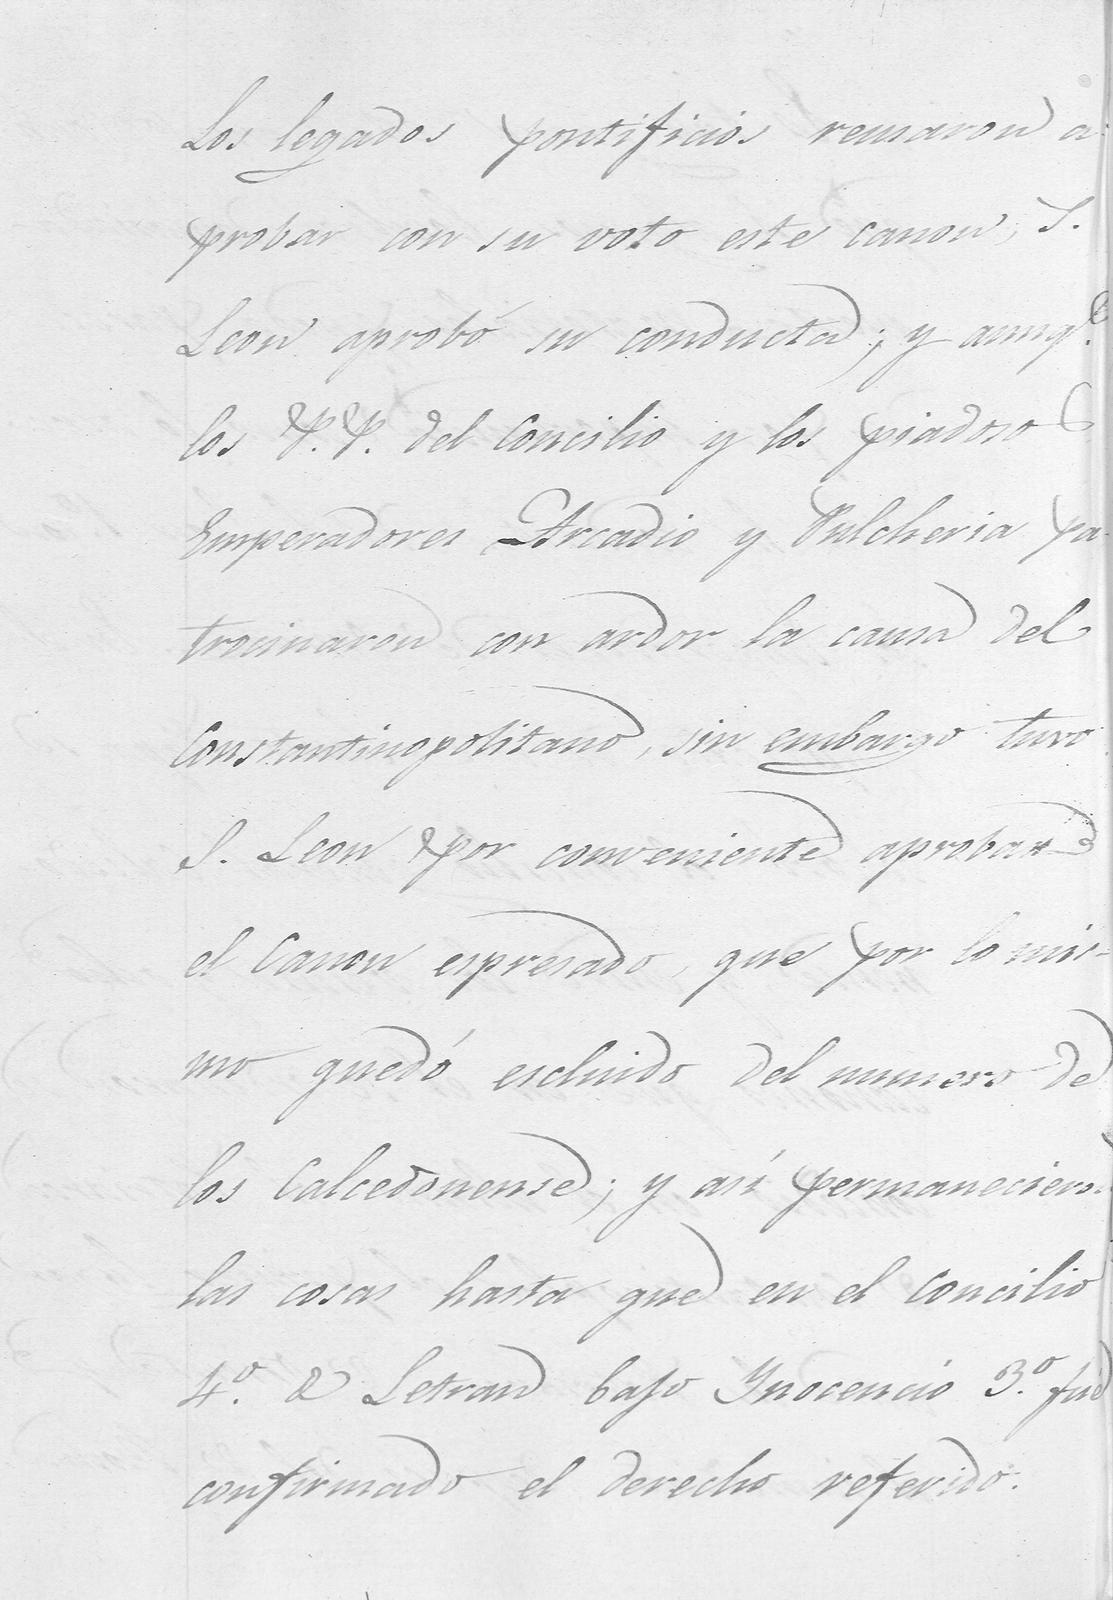 Los legados pontificios reusaron a-
probar con su voto este canon, S.
Leon aprobó su conducta; y aunq.e
los P.P. del Concilio y los piadosos
Emperadores Arcadio y Pulcheria pa-
trocinaron con ardor la causa del
Constantinopolitano, sin embargo tuvo
S. Leon por conveniente aprobar
el Canon espresado, que por lo mis-
mo quedó escluido del numero de
los Calcedonense; y asi permanecieron
las cosas hasta que en el Concilio
4.º de Letran bajo Inocencio 3.º fué
confirmado el derecho referido.